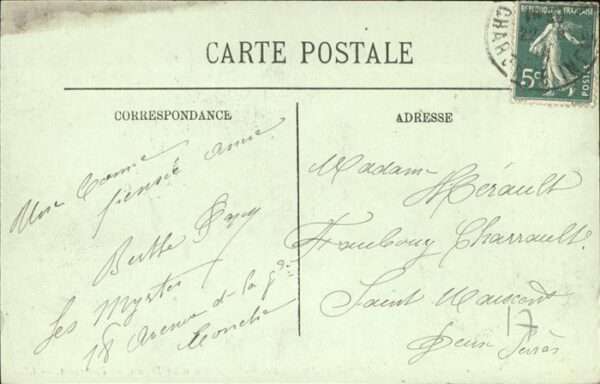 CARTE POSTALE
CORRESPONDANCE
ADRESSE
REPUBLIQUE FRANÇAISE
5c
POSTES
CHARE
Une bonne
pensée amie
Berthe
Les Myrtes
18 Avenue de la Gde
Conche
Madame
Hérault
Faubourg Charrault
Saint Maixent
17
Deux Sèvres